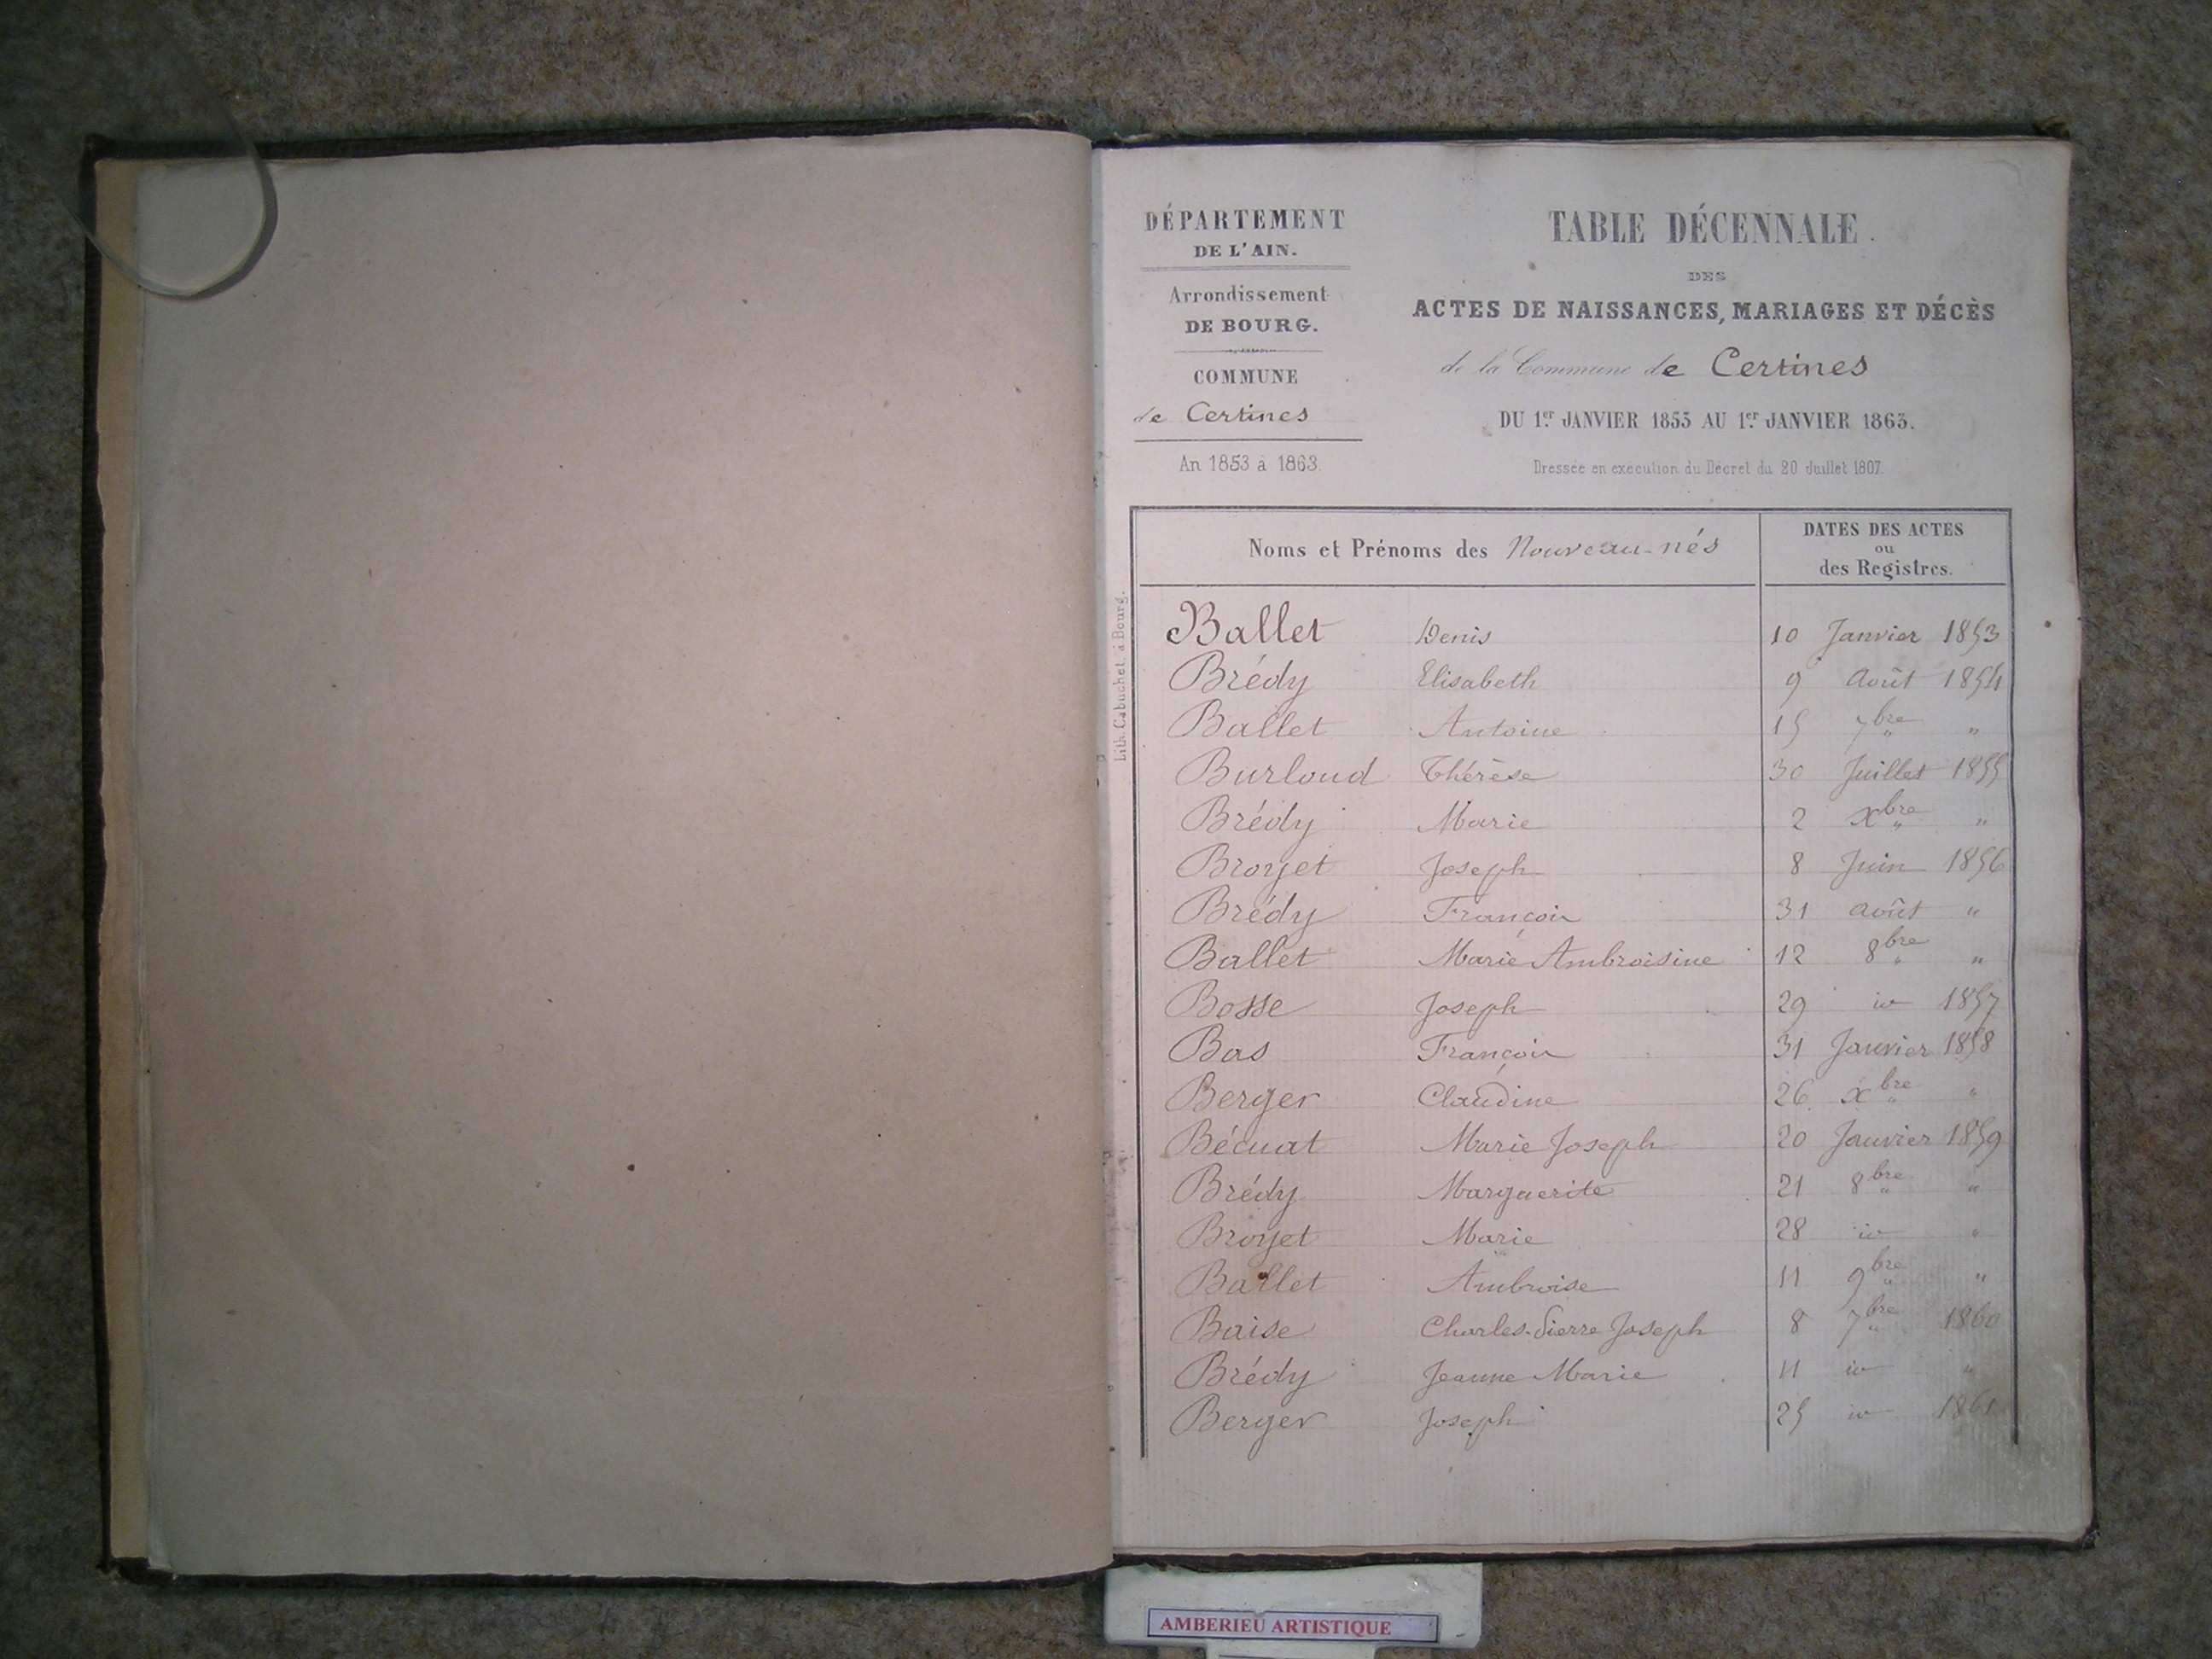 DÉPARTEMENT
DE L'AIN.
Arrondissement
DE BOURG.
COMMUNE
de Certines
An 1853 à 1863.
TABLE DÉCENNALE.
DES
ACTES DE NAISSANCES, MARIAGES ET DÉCÈS
de la Commune de Certines
DU 1er JANVIER 1853 AU 1er JANVIER 1863.
Dressée en exécution du Décret du 20 Juillet 1807.
Noms et Prénoms des Nouveau-nés
DATES DES ACTES
ou
des Registres.
Lith. Cabuchet, à Bourg.
Ballet Denis 10 Janvier 1853
Brédy Elisabeth 9 Août 1854
Ballet Antoine 15 7bre "
Burloud Thérèse 30 Juillet 1855
Brédy Marie 2 xbre "
Broyet Joseph 8 Juin 1856
Brédy François 31 août "
Ballet Marie Ambroisine 12 8bre "
Bosse Joseph 29 id 1857
Bas François 31 Janvier 1858
Berger Claudine 26 xbre "
Bécuat Marie Joseph 20 Janvier 1859
Brédy Marguerite 21 8bre "
Broyet Marie 28 id "
Ballet Ambroise 11 9bre "
Baise Charles-Pierre Joseph 8 7bre 1860
Brédy Jeanne Marie 11 id "
Berger Joseph 25 id 1861
AMBERIEU ARTISTIQUE